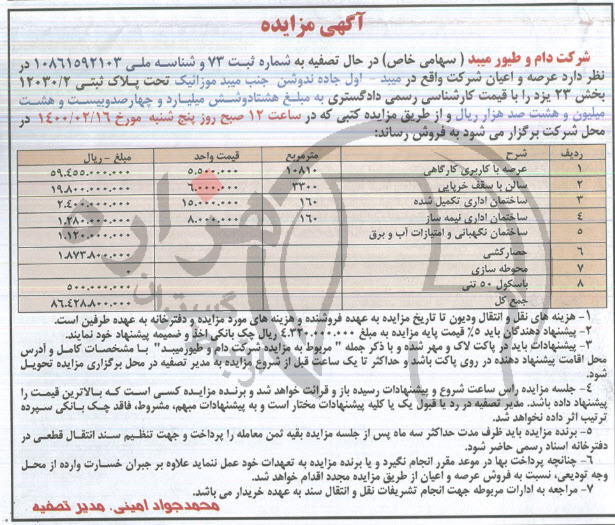 آگهی مزایده
شرکت دام و طیور میبد ( سهامی خاص) در حال تصفیه به شماره ثبت ۷۳ و شناسه ملی ۱۰۸۶۱۵۹۲۱۰۳ در
نظر دارد عرصه و اعیان شرکت واقع در میبد - اول جاده ندوشن جنب میبد موزائیک تحت پلاک ثبتی ۱۲۰۳۰/۲
بخش ۲۳ یزد را با قیمت کارشناسی رسمی دادگستری به مبلغ هشتادوشش میلیارد و چهارصدوبیست و هشت
میلیون و هشت صد هزار ریال و از طریق مزایده کتبی که در ساعت ۱۲ صبح روز پنج شنبه مورخ ۱۴۰۰/۰۲/۱۶ در
محل شرکت برگزار می شود به فروش رساند:
ردیف شرح مترمربع قیمت واحد مبلغ - ریال
۱ عرصه با کاربری کارگاهی ۱۰۸۱۰ ۵.۵۰۰.۰۰۰ ۵۹.۴۵۵.۰۰۰.۰۰۰
۲ سالن با سقف خرپایی ۳۳۰۰ ۶.۰۰۰.۰۰۰ ۱۹.۸۰۰.۰۰۰.۰۰۰
۳ ساختمان اداری تکمیل شده ۱۶۰ ۱۵.۰۰۰.۰۰۰ ۲.۴۰۰.۰۰۰.۰۰۰
۴ ساختمان اداری نیمه ساز ۱۶۰ ۸.۰۰۰.۰۰۰ ۱.۲۸۰.۰۰۰.۰۰۰
۵ ساختمان نگهبانی و امتیازات آب و برق ۱.۱۲۰.۰۰۰.۰۰۰
۶ حصارکشی ۱.۸۷۳.۸۰۰.۰۰۰
۷ محوطه سازی ۰
۸ باسکول ۵۰ تنی ۵۰۰.۰۰۰.۰۰۰
جمع کل ۸۶.۴۲۸.۸۰۰.۰۰۰
۱- هزینه های نقل و انتقال ودیون تا تاریخ مزایده به عهده فروشنده و هزینه های مورد مزایده و دفترخانه به عهده طرفین است.
۲- پیشنهاد دهندگان باید ۵٪ قیمت پایه مزایده به مبلغ ۴.۳۳۰.۰۰۰.۰۰۰ ریال چک بانکی اخذ و ضمیمه پیشنهاد خود نمایند.
۳- پیشنهادات باید در پاکت لاک و مهر شده و با ذکر جمله " مربوط به مزایده شرکت دام و طیورمیبد" با مشخصات کامل و آدرس
محل اقامت پیشنهاد دهنده در روی پاکت باشد و حداکثر تا یک ساعت قبل از شروع مزایده به مدیر تصفیه در محل برگزاری مزایده تحویل
شود.
۴- جلسه مزایده راس ساعت شروع و پیشنهادات رسیده باز و قرائت خواهد شد و برنده مزایده کسی است که بالاترین قیمت را
پیشنهاد داده باشد. مدیر تصفیه در رد یا قبول یک یا کلیه پیشنهادات مختار است و به پیشنهادات مبهم، مشروط، فاقد چک بانکی سپرده
ترتیب اثر داده نخواهد شد.
۵- برنده مزایده باید ظرف مدت حداکثر سه ماه پس از جلسه مزایده بقیه ثمن معامله را پرداخت و جهت تنظیم سند انتقال قطعی در
دفترخانه اسناد رسمی حاضر شود.
۶- چنانچه پرداخت بها در موعد مقرر انجام نگیرد و یا برنده مزایده به تعهدات خود عمل ننماید علاوه بر جبران خسارت وارده از محل
وجه تودیعی، نسبت به فروش عرصه و اعیان از طریق مزایده مجدد اقدام خواهد شد.
۷- مراجعه به ادارات مربوطه جهت انجام تشریفات نقل و انتقال سند به عهده خریدار می باشد.
محمدجواد امینی. مدیر تصفیه